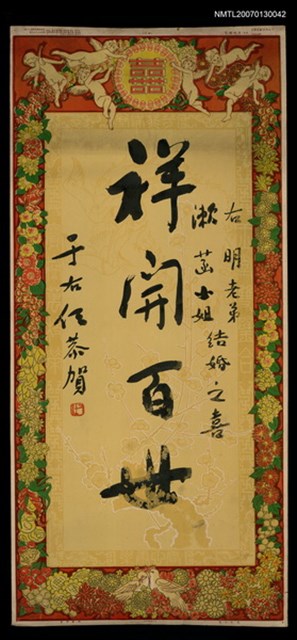 NMTL20070130042
囍
右明老弟
漱菡小姐結婚之喜
祥開百世
于右任恭賀